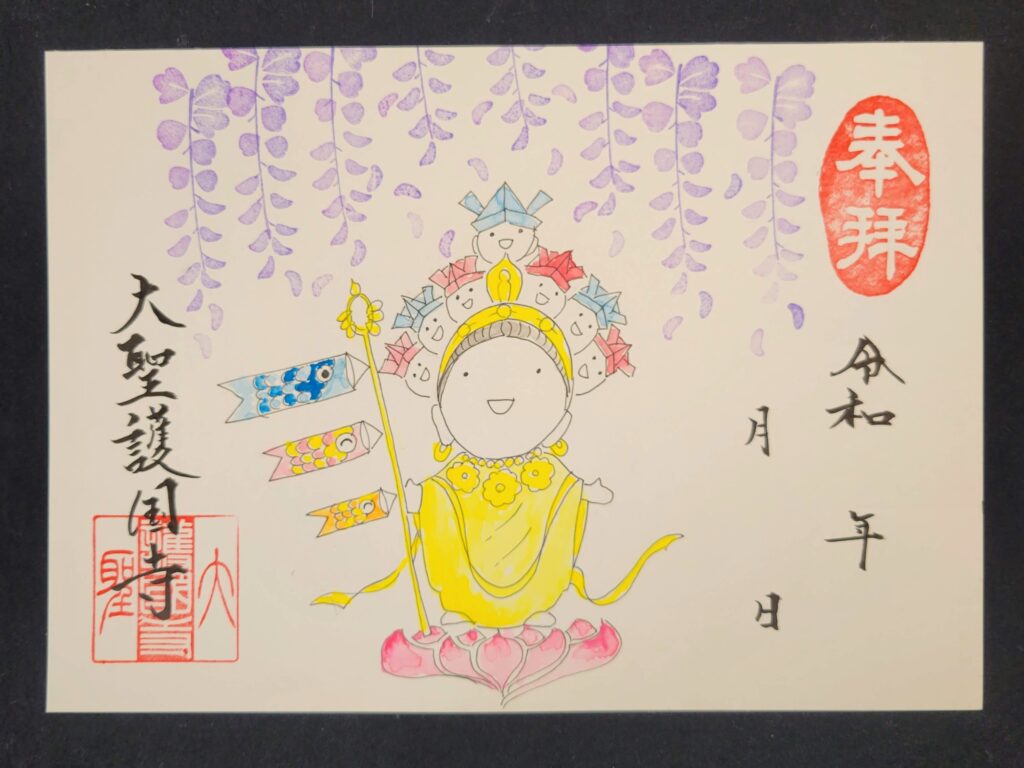 奉拝
令和 年
月 日
大聖護国寺
大
護国寺
聖